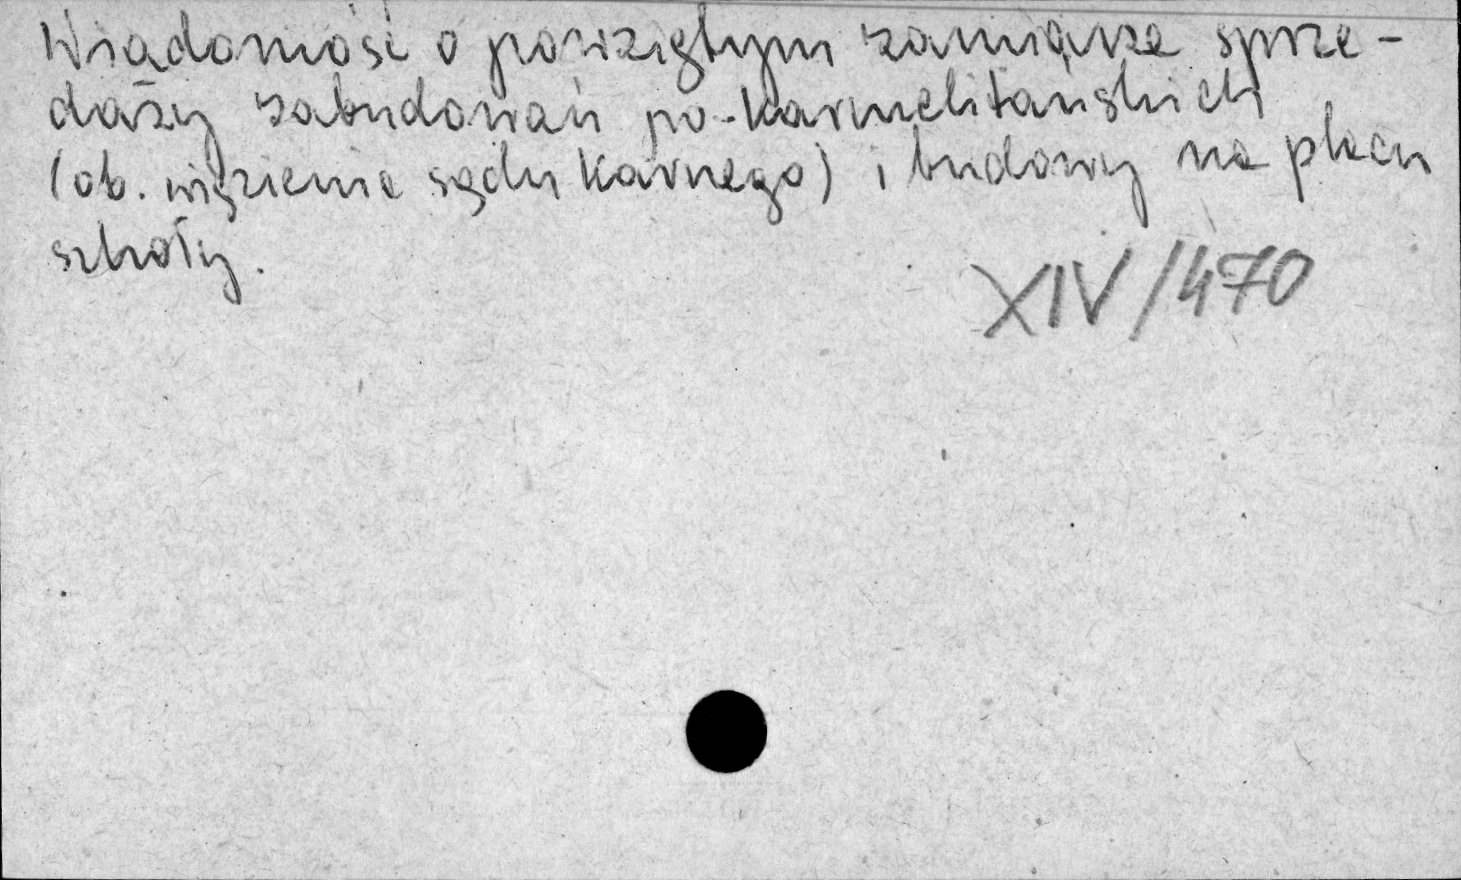 Wiadomość o powziętym zamiarze sprze-
daży zabudowań po-karmelitańskich
(ob. więzienie sądu karnego) i budowy na placu
szkoły.
XIV/470